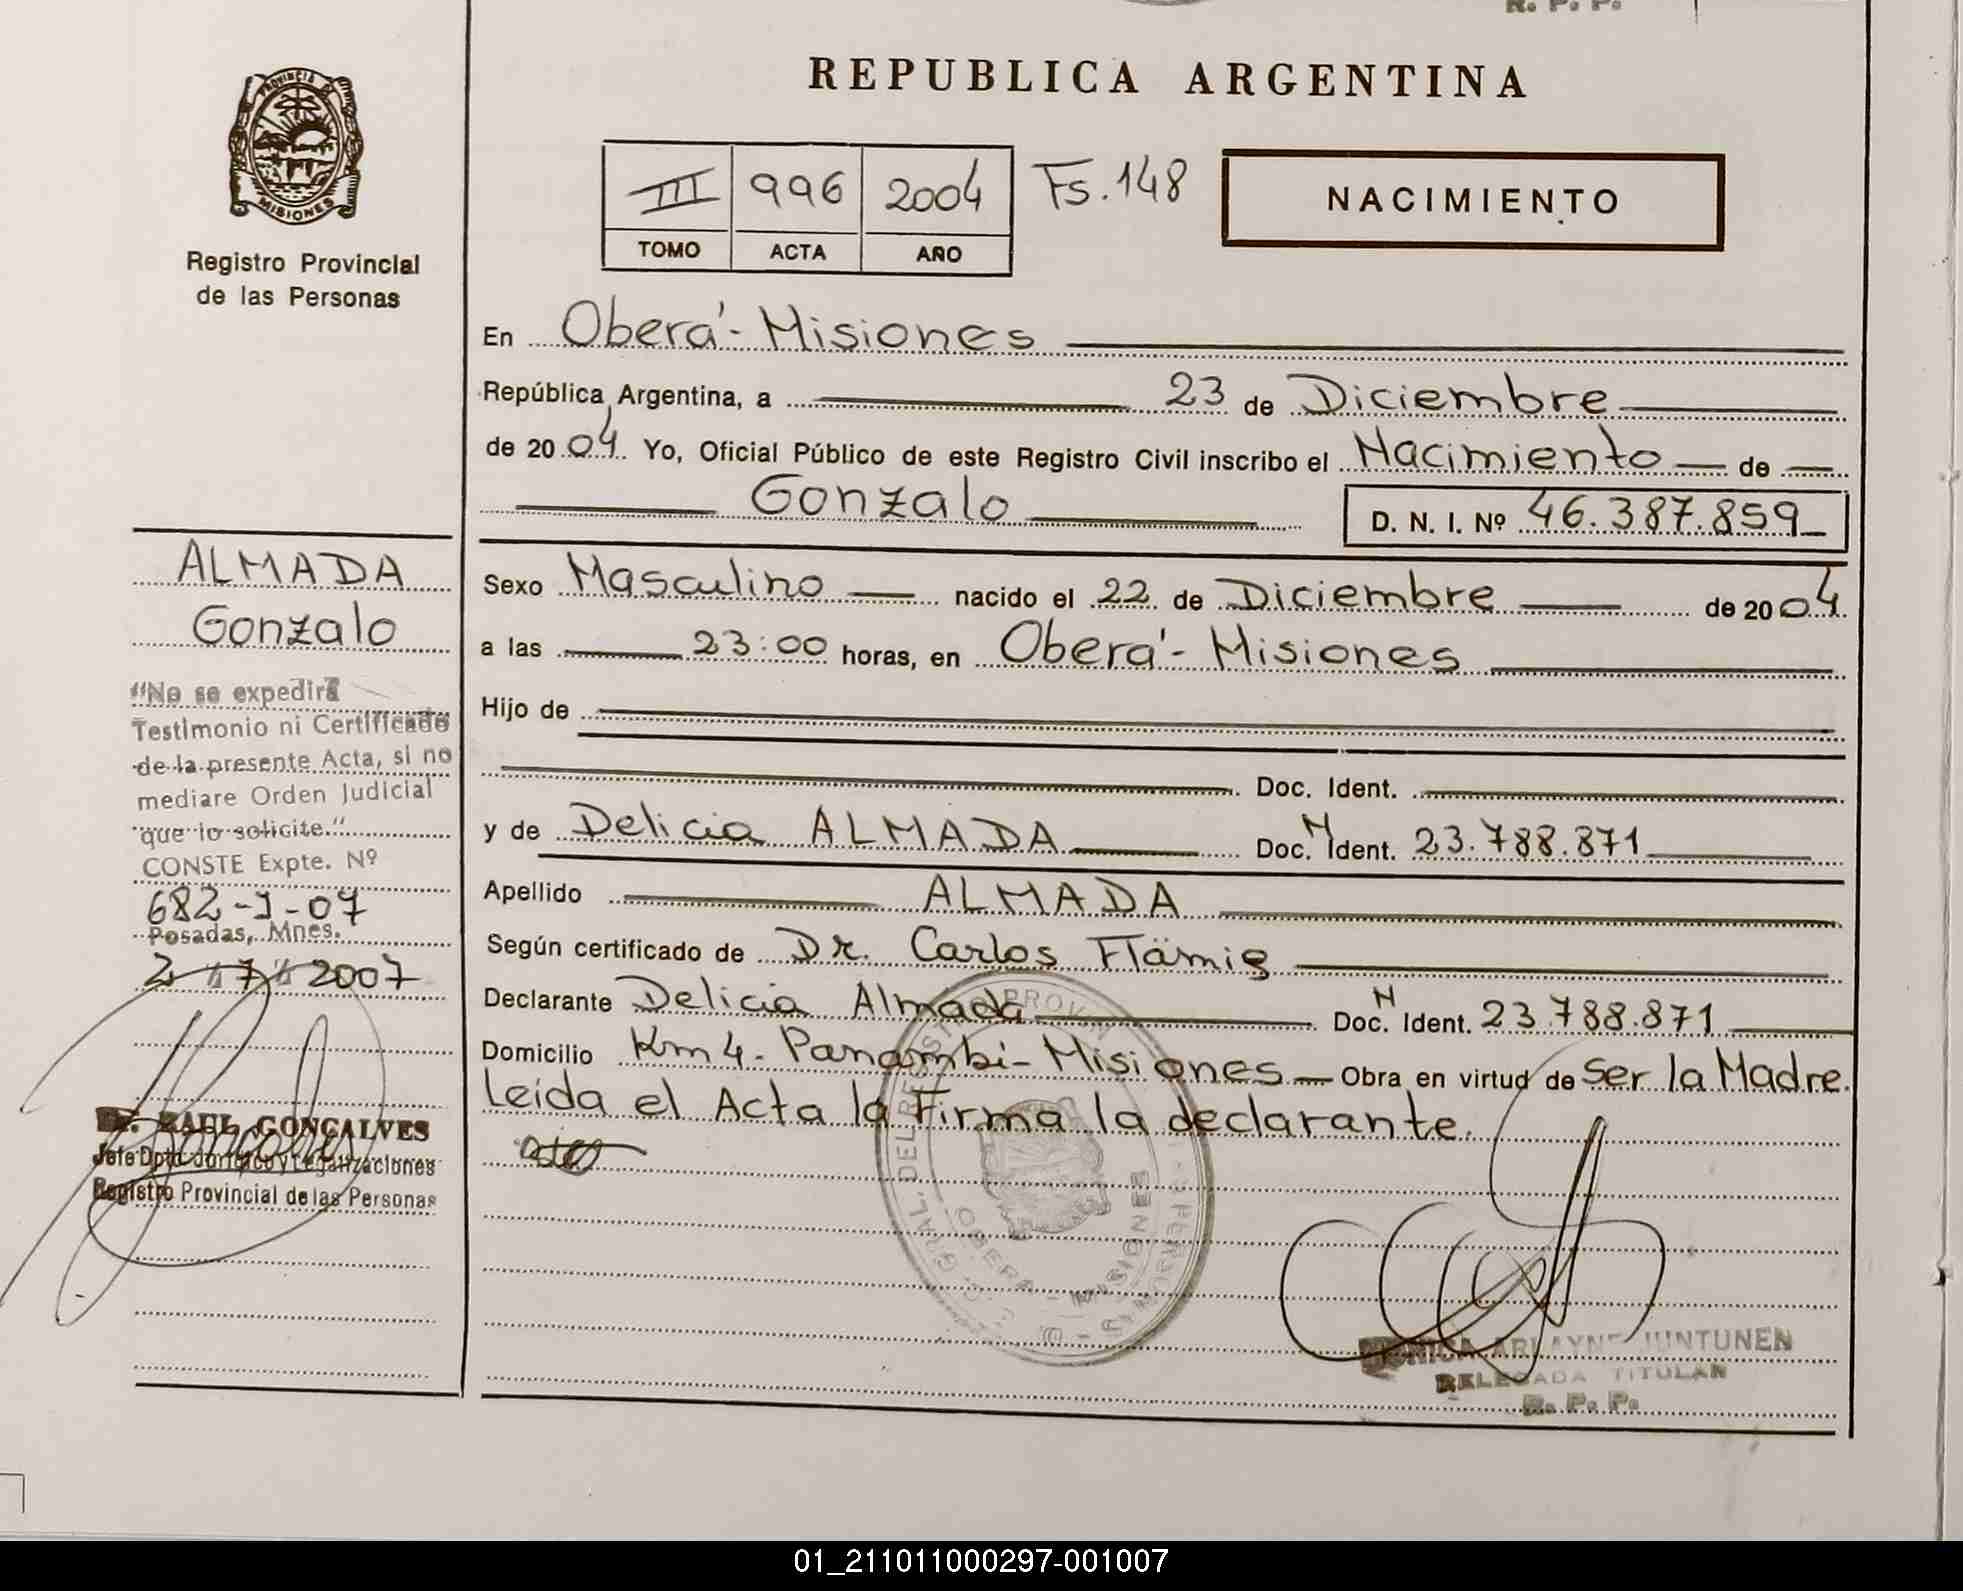 R. P. P.
REPUBLICA ARGENTINA
PROVINCIA DE
MISIONES
Registro Provincial
de las Personas
III 996 2004 Fs. 148
TOMO ACTA AÑO
NACIMIENTO
En Oberá - Misiones
República Argentina, a 23 de Diciembre
de 2004 Yo, Oficial Público de este Registro Civil inscribo el Nacimiento de
Gonzalo D. N. I. Nº 46.387.859
Sexo Masculino nacido el 22 de Diciembre de 2004
a las 23:00 horas, en Oberá - Misiones
Hijo de
Doc. Ident.
y de Delicia ALMADA Doc. N Ident. 23.788.871
Apellido ALMADA
Según certificado de Dr. Carlos Flämig
Declarante Delicia Almada Doc. N Ident. 23.788.871
Domicilio Km 4 - Panambi - Misiones Obra en virtud de ser la Madre.
Leida el Acta la Firma la declarante.
ALMADA
Gonzalo
"No se expedirá
Testimonio ni Certificado
de la presente Acta, si no
mediare Orden Judicial
que lo solicite."
CONSTE Expte. Nº
682-J-07
Posadas, Mnes.
2 7 2007
RAUL GONCALVES
Jefe Dpto. Jurídico y Legalizaciones
Registro Provincial de las Personas
OBERA - MISIONES
MONICA ARLAYNE JUNTUNEN
DELEGADA TITULAR
R. P. P.
01_211011000297-001007